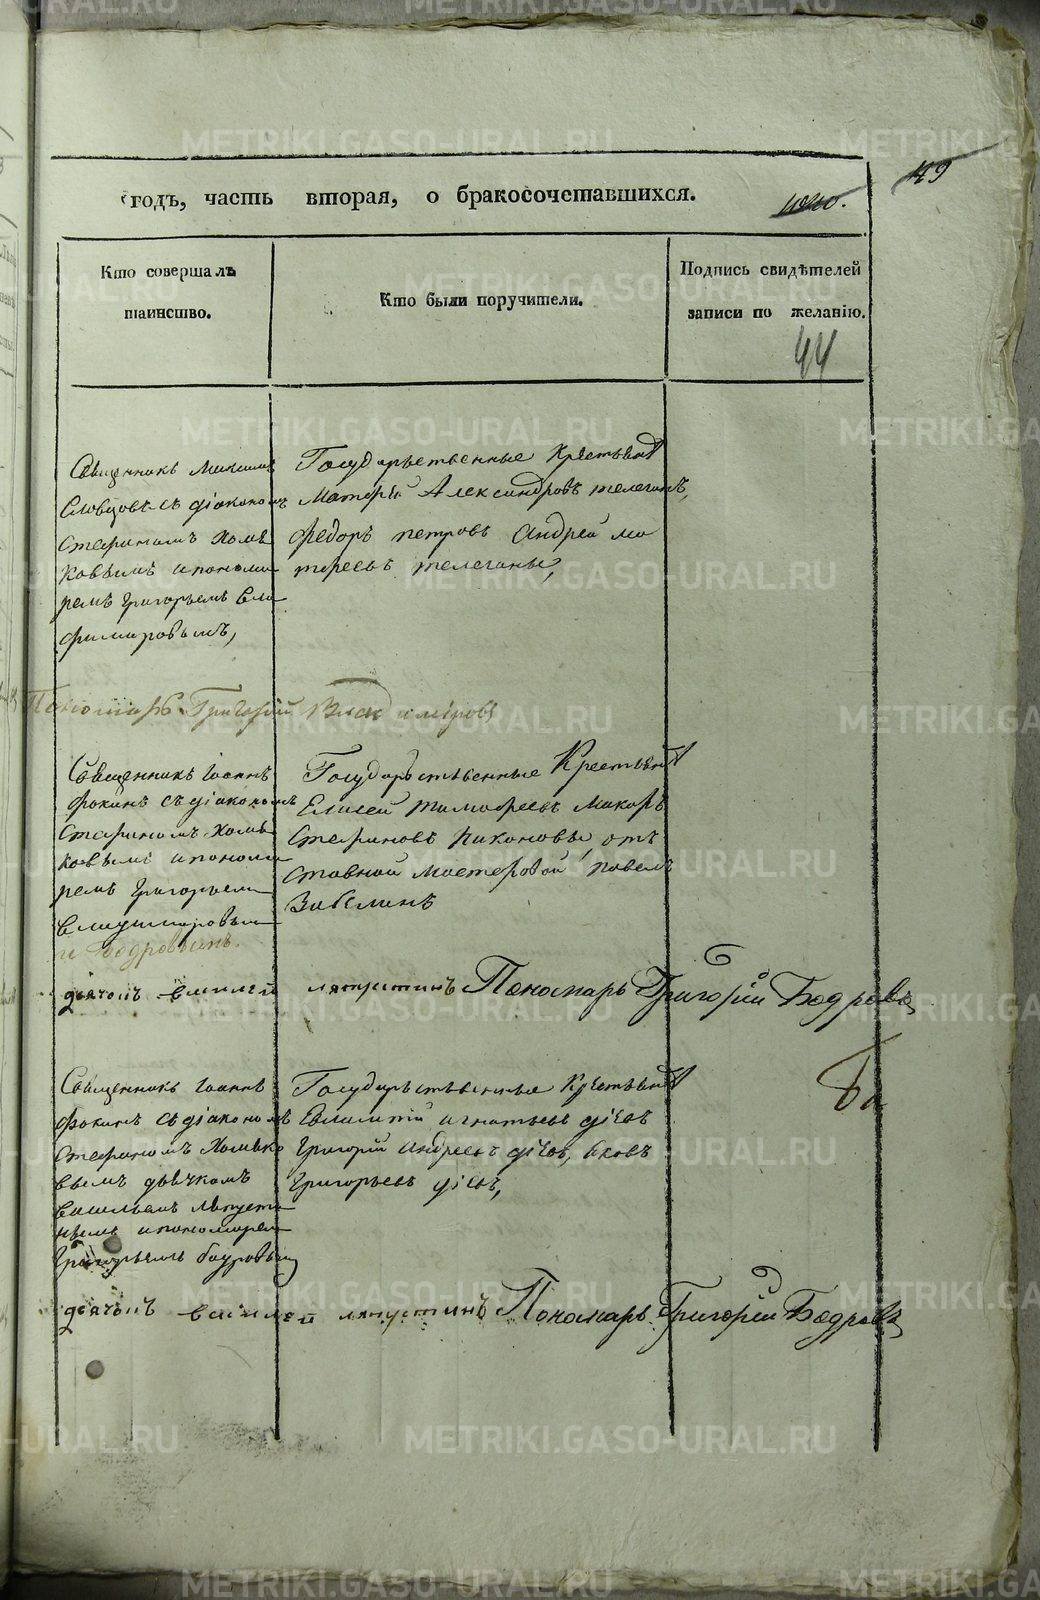 годъ, часть вторая, о бракосочетавшихся.
49
Кто совершалъ
таинство.
Кто были поручители.
Подпись свидѣтелей
записи по желанію.
44
Священникъ Максимъ
Словцовъ съ діакономъ
Стефаномъ Хомя
ковымъ и понома
ремъ Григорьемъ Вла
димировымъ,
Государственные Крестьяне
Матфей Александровъ телегинъ,
Федоръ петровъ Андрей ма
тфеевъ телегины,
Пономарь Григорій Владимировъ
Священникъ Іоаннъ
фокинъ съ діакономъ
Стефаномъ Хомя
ковымъ и понома
ремъ Григорьемъ
Владимировым
и Бодровымъ.
Государственные Крестьяне
Елисей тимофеевъ Макаръ
Стефановъ Никоновы, отъ
ставной мастеровой павелъ
Забелинъ
дьячокъ василей лапустинъ Пономарь Григорій Бодровъ
Священникъ Іоаннъ
фокинъ съ діакономъ
Стефаномъ Хомяко
вымъ дьячкомъ
Васильемъ Лапусти
нымъ и пономарем
Григорьемъ бодровым
Государственные Крестьяне
игнатьевъ діевъ
Григорій андреевъ діевъ, яковъ
Григорьевъ діевъ,
дьячокъ василей лапустинъ Пономарь Григорій Бодровъ
METRIKI.GASO-URAL.RU